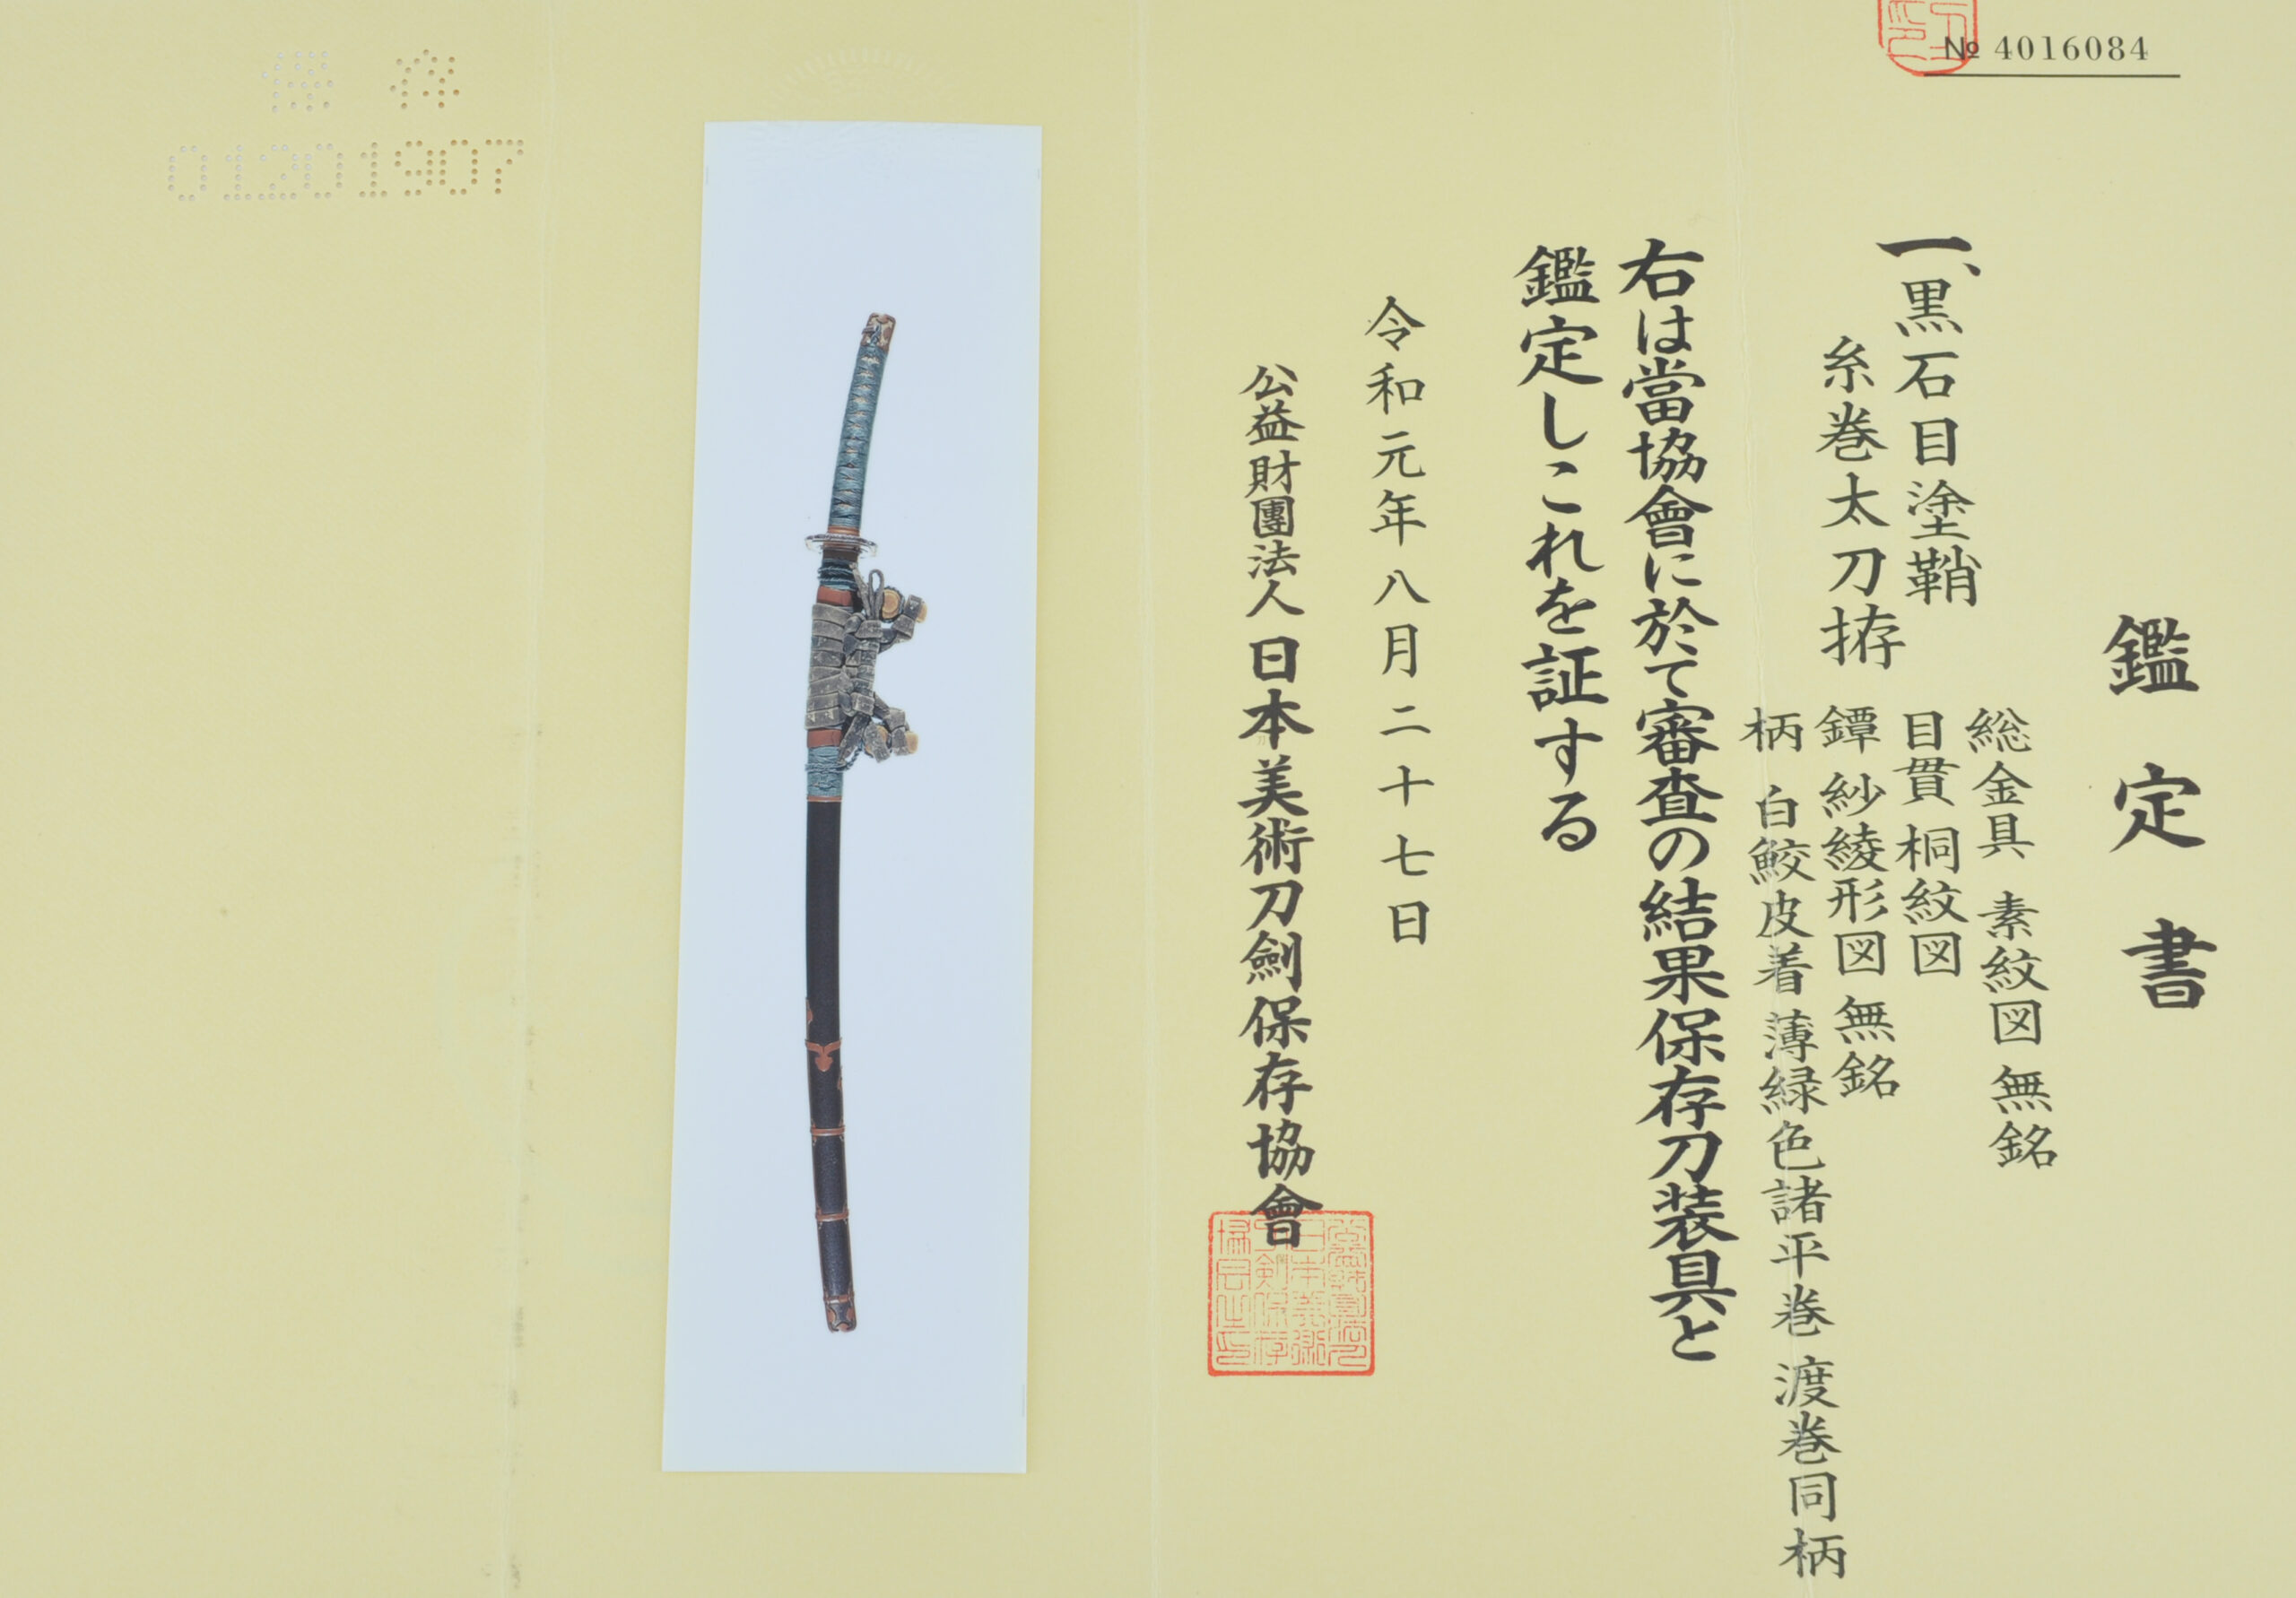 № 4016084
鑑定書
一、黒石目塗鞘
糸巻太刀拵
総金具 素紋図 無銘
目貫 桐紋図
鐔 紗綾形図 無銘
柄 白鮫皮着 薄緑色諸平巻 渡巻同柄
右は當協會に於て審査の結果保存刀装具と
鑑定しこれを証する
令和元年八月二十七日
公益財團法人日本美術刀劍保存協會
保存
01201907